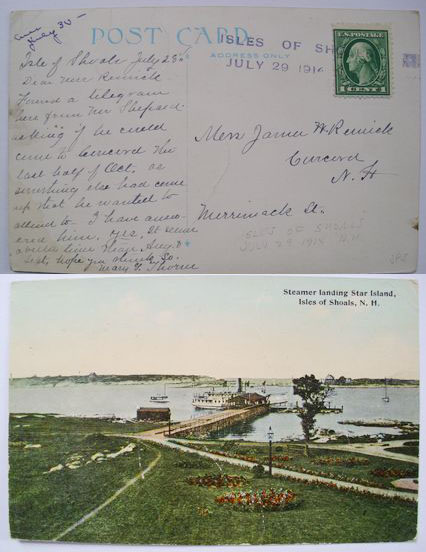 Ans
July 30 -
POST CARD
ADDRESS ONLY
ISLES OF SH
JULY 29 1914
U.S. POSTAGE
1 CENT 1
Isle of Shoals July 28th
Dear Mrs Remick
Found a telegram
here from Mr Shepard
asking if he could
come to Concord the
last half of Oct. as
something else had come
up that he wanted to
attend to. I have answ-
ered him, yes.
Mary G. Thorne
Mrs James W. Remick
Concord
N. H
Merrimack St.
ISLES OF SHOALS
JULY 29 1914 N.H.
Steamer landing Star Island,
Isles of Shoals, N. H.